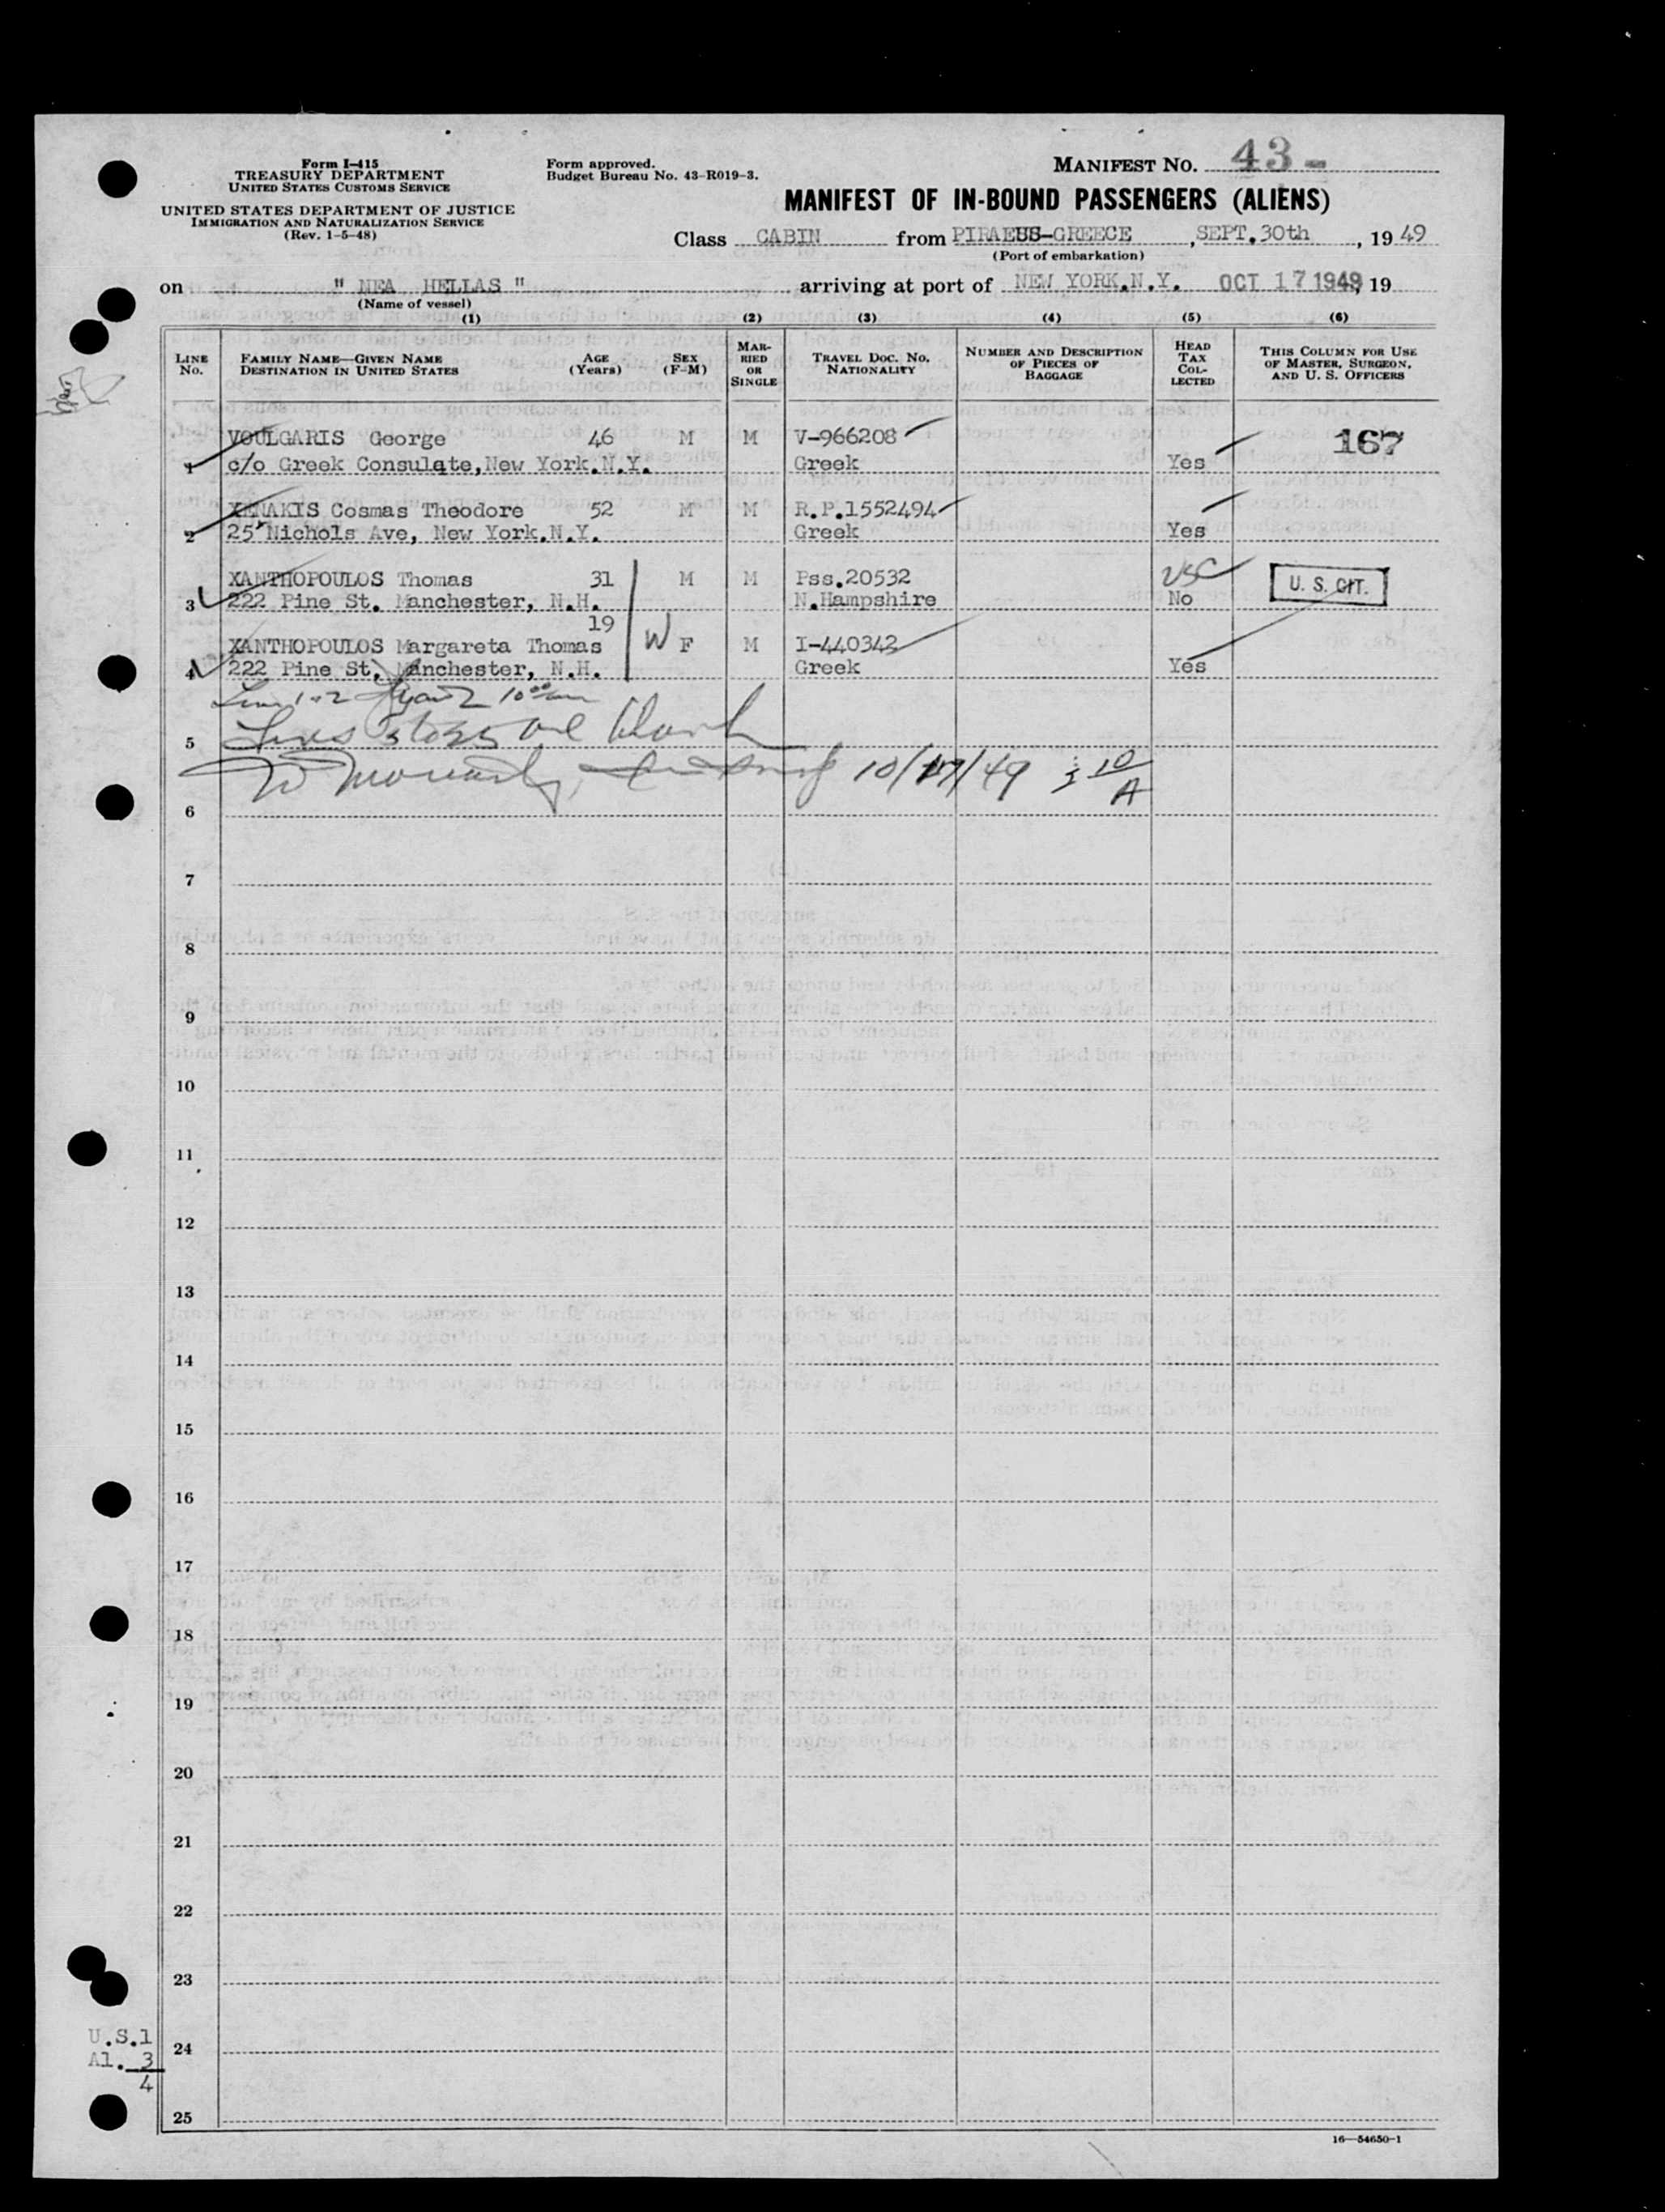 Form I-415
TREASURY DEPARTMENT
UNITED STATES CUSTOMS SERVICE
UNITED STATES DEPARTMENT OF JUSTICE
IMMIGRATION AND NATURALIZATION SERVICE
(Rev. 1-5-48)
Form approved.
Budget Bureau No. 43-R019-3.
MANIFEST NO. 43-
MANIFEST OF IN-BOUND PASSENGERS (ALIENS)
Class CABIN from PIRAEUS-GREECE, SEPT.30th, 19 49
(Port of embarkation)
on " NEA HELLAS " arriving at port of NEW YORK.N.Y. OCT 17 1949, 19
(Name of vessel)
(1) (2) (3) (4) (5) (6)
LINE No. FAMILY NAME—GIVEN NAME DESTINATION IN UNITED STATES AGE (Years) SEX (F-M) MARRIED OR SINGLE TRAVEL DOC. NO. NATIONALITY NUMBER AND DESCRIPTION OF PIECES OF BAGGAGE HEAD TAX COLLECTED THIS COLUMN FOR USE OF MASTER, SURGEON, AND U. S. OFFICERS
VOULGARIS George 46 M M V-966208 167
1 c/o Greek Consulate,New York.N.Y. Greek Yes
XENAKIS Cosmas Theodore 52 M M R.P.1552494
2 25 Nichols Ave, New York.N.Y. Greek Yes
XANTHOPOULOS Thomas 31 M M Pss.20532 USC U. S. CIT.
3 222 Pine St. Manchester, N.H. N.Hampshire No
19
XANTHOPOULOS Margareta Thomas W F M I-440342
4 222 Pine St. Manchester, N.H. Greek Yes
5 Lines 5 to 25 are blank
10/17/49 10/A
6
7
8
9
10
11
12
13
14
15
16
17
18
19
20
21
22
23
U.S.1
24
Al. 3
4
25
16—54650-1